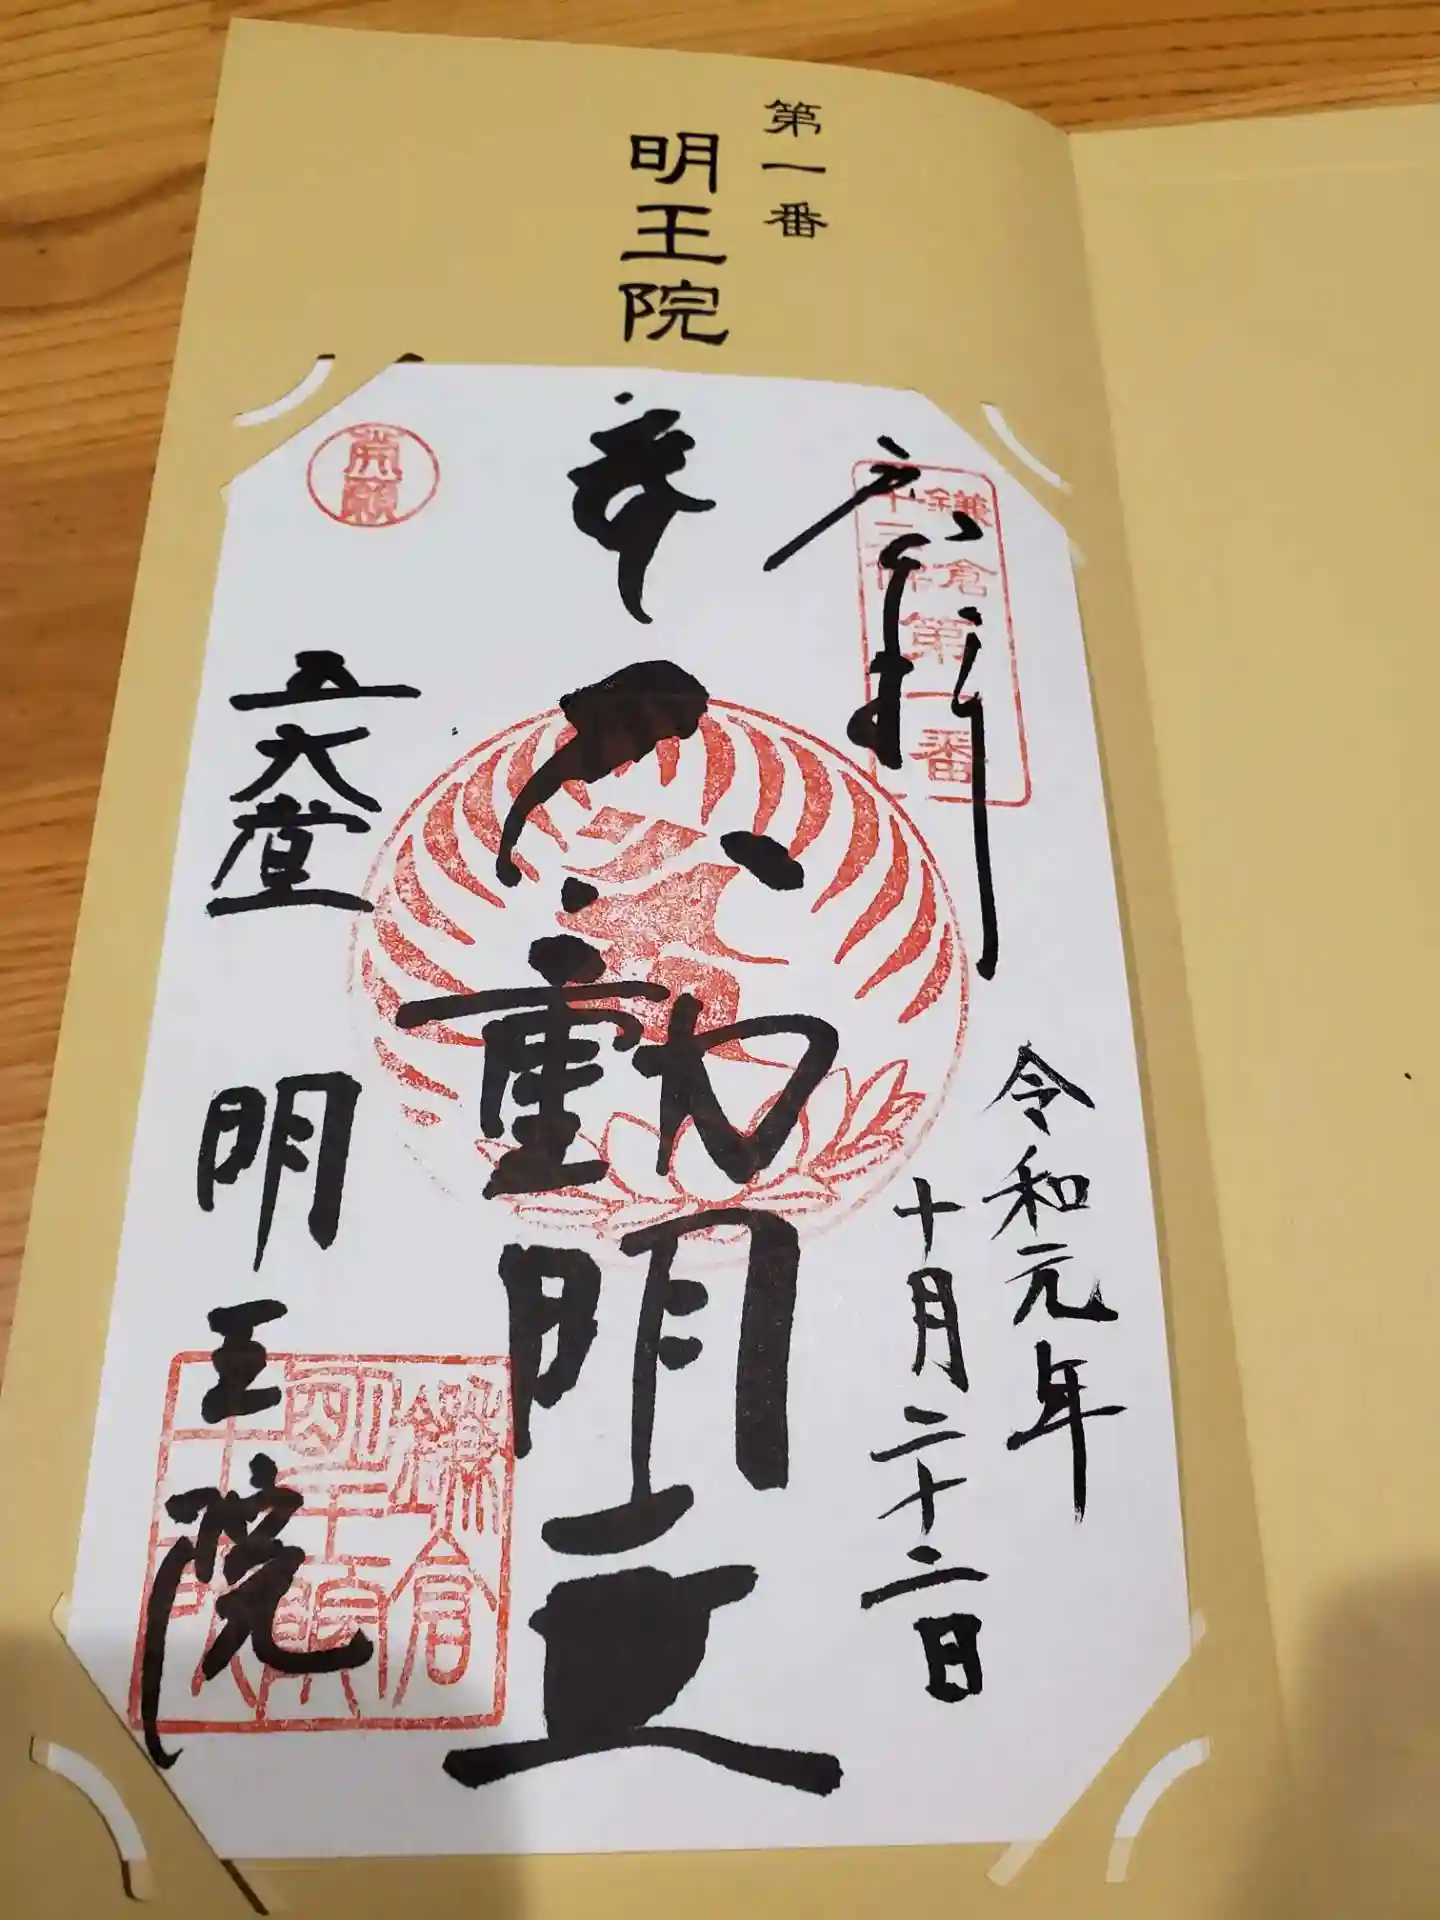 第一番
明王院
鎌倉
十三仏
第一番
奉拝
令和元年
十月二十二日
奉
不動明王
開願
五大堂
明王院
鎌倉
明王院